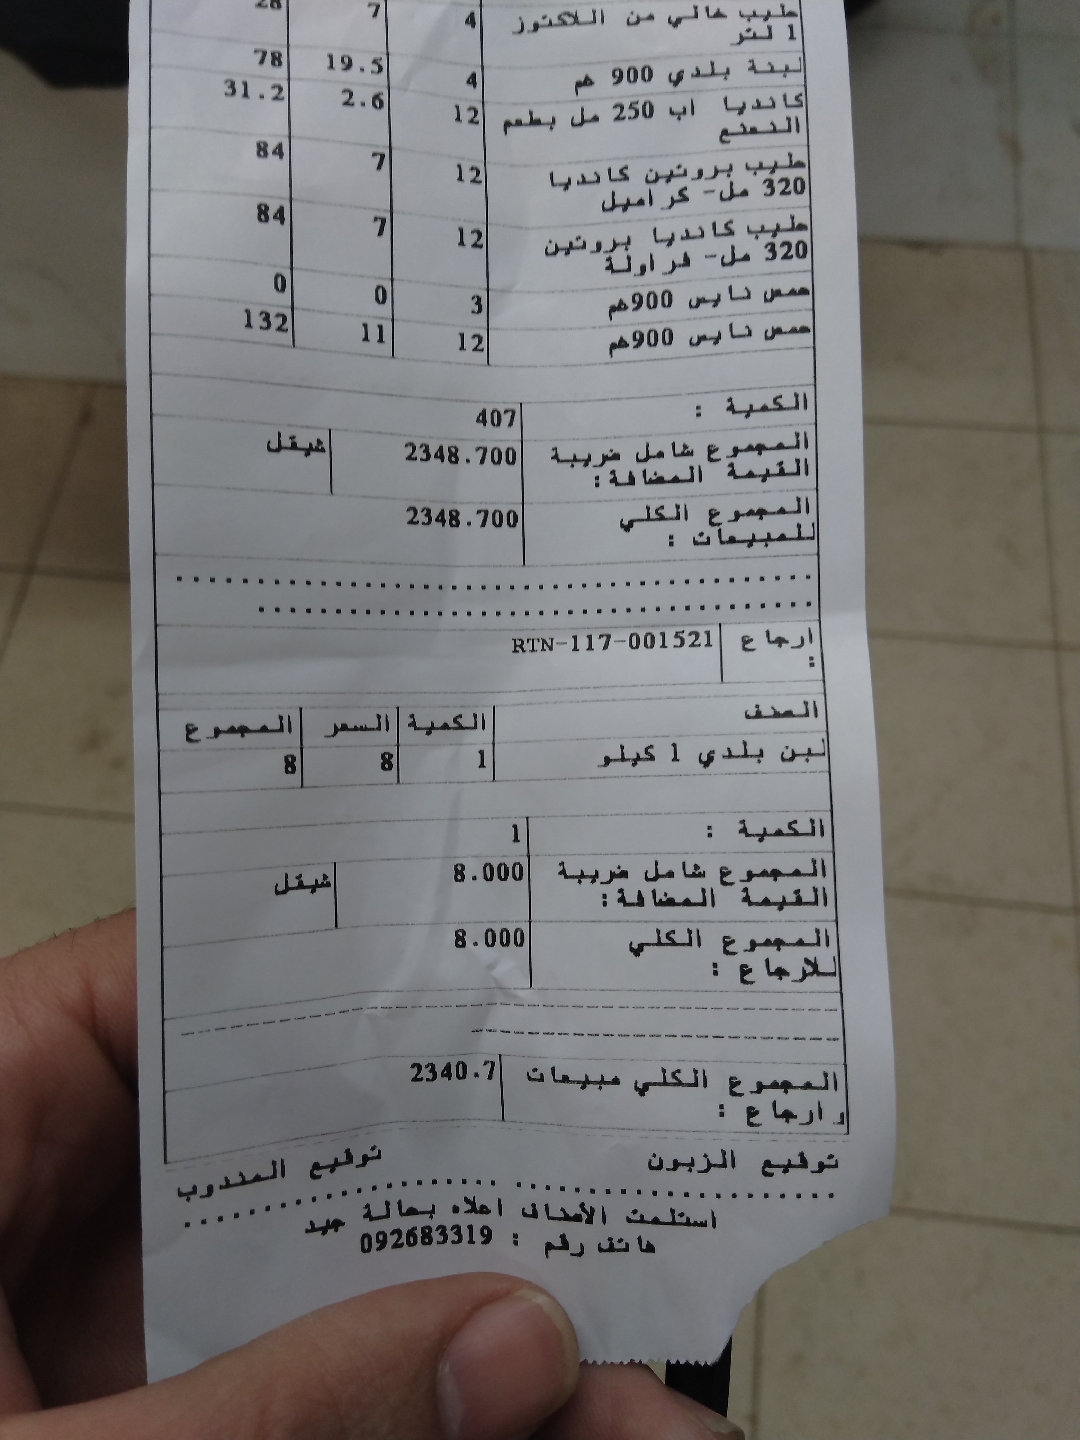 حليب خالي من اللاكتوز 4 7 28
1 لتر
لبنة بلدي 900 غم 4 19.5 78
كانديا اب 250 مل بطعم 12 2.6 31.2
النعنع
حليب بروتين كانديا 12 7 84
320 مل- كراميل
حليب كانديا بروتين 12 7 84
320 مل- فراولة
حمص نايس 900غم 3 0 0
حمص نايس 900غم 12 11 132
الكمية : 407
المجموع شامل ضريبة 2348.700 شيقل
القيمة المضافة:
المجموع الكلي 2348.700
للمبيعات :
ارجاع RTN-117-001521
:
الصنف الكمية السعر المجموع
لبن بلدي 1 كيلو 1 8 8
الكمية : 1
المجموع شامل ضريبة 8.000 شيقل
القيمة المضافة:
المجموع الكلي 8.000
للارجاع :
المجموع الكلي مبيعات 2340.7
وارجاع :
توقيع الزبون توقيع المندوب
استلمت الأصناف اعلاه بحالة جيد
هاتف رقم : 092683319